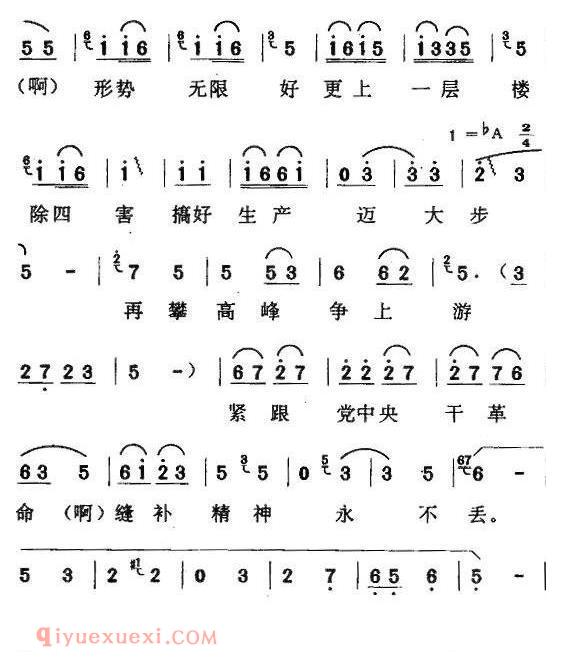 5 5 | 6 i i 6 | 6 i i 6 | 3 5 | i 6 i 5 | i 3 3 5 | 3 5
(啊) 形势 无限 好 更上 一层 楼
1 = ♭A 2/4
6 i i 6 | i | i i | i 6 6 i | 0 3 | 3 3 | 2 3
除四 害 搞好 生产 迈 大 步
5 - | 2 7 5 | 5 5 3 | 6 6 2 | 2 5. (3
再 攀 高 峰 争 上 游
2 7 2 3 | 5 -) | 6 7 2 7 | 2 2 2 7 | 2 7 7 6
紧 跟 党中央 干 革
6 3 5 | 6 i 2 3 | 5 3 5 | 0 5 3 | 3 5 | 67 6 -
命 (啊) 缝 补 精 神 永 不 丢。
5 3 | 2 2 | 0 3 | 2 7 | 6 5 6 | 5 -
qiyuexuexi.COM